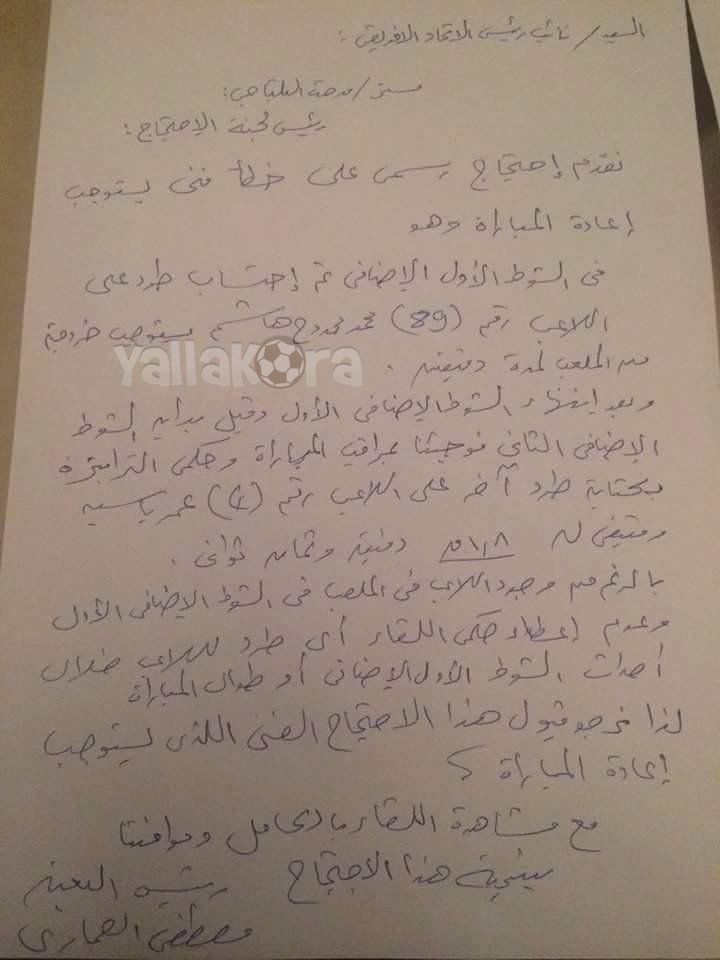 السيد/ نائب رئيس الاتحاد الافريقي :
مستر/ مدحت البلتاجى :
رئيس لجنة الإحتجاج :
نقدم إحتجاج رسمى على خطأ فنى يستوجب
إعادة المباراة وهو
فى الشوط الأول الإضافى تم إحتساب طرد على
اللاعب رقم (89) محمد ممدوح هاشم يستوجب خروجه
من الملعب لمدة دقيقتين .
وبعد إنتهاء الشوط الإضافى الأول وقبل بداية الشوط
الإضافى الثانى فوجئنا بمراقب المباراة وحكمى الترابيزة
بكتابة طرد آخر على اللاعب رقم (٤) عمر ياسين
ومتبقى له ١,٨ دقيقة وثمان ثوانى .
بالرغم من وجود اللاعب فى الملعب فى الشوط الإضافى الأول
وعدم إعطاء حكمى اللقاء أى طرد للاعب خلال
أحداث الشوط الأول الإضافى أو طوال المباراة
لذا نرجو قبول هذا الاحتجاج الفنى اللذى يستوجب
إعادة المباراة
مع مشاهدة اللقاء بالكامل وموافتنا
بنتيجة هذا الاحتجاج رئيس البعثة
مصطفى العمارى
YallaKora